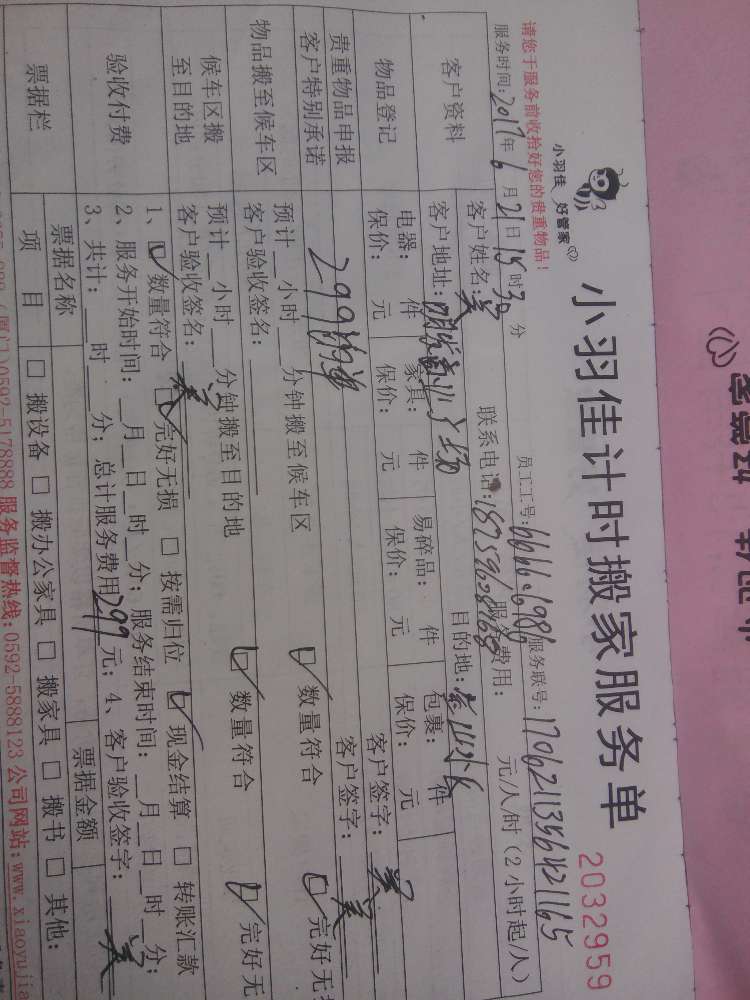 小羽佳 好管家
小羽佳计时搬家服务单
2032959
请您于服务前收拾好您的贵重物品！
员工工号:
服务联号:1706211356421165
服务时间:2017年6月21日15时30分
服务费用: 元/人/时(2小时起/人)
客户资料
客户姓名:吴
联系电话:18759628868
客户地址:
目的地:
物品登记
电器: 件 家具: 件 易碎品: 件 包裹: 件
保价: 元 保价: 元 保价: 元 保价: 元
客户签字:吴
贵重物品申报
客户特别承诺
299
客户签字:吴
物品搬至候车区
预计__小时__分钟搬至候车区 数量符合 完好无
客户验收签名:
候车区搬
至目的地
预计__小时__分钟搬至目的地 数量符合 完好无
客户验收签名:吴
验收付费
1、数量符合 完好无损 按需归位 现金结算 转账汇款
2、服务开始时间:__月__日__时__分;服务结束时间:__月__日__时__分;
3、共计:__时__分;总计服务费用299元;4、客户验收签字:吴
票据栏
票据名称
票据金额
项目
搬设备 搬办公家具 搬家具 搬书 其他:
(厦门)0592-5178888 服务监督热线:0592-5888123 公司网站:www.xiaoyujia